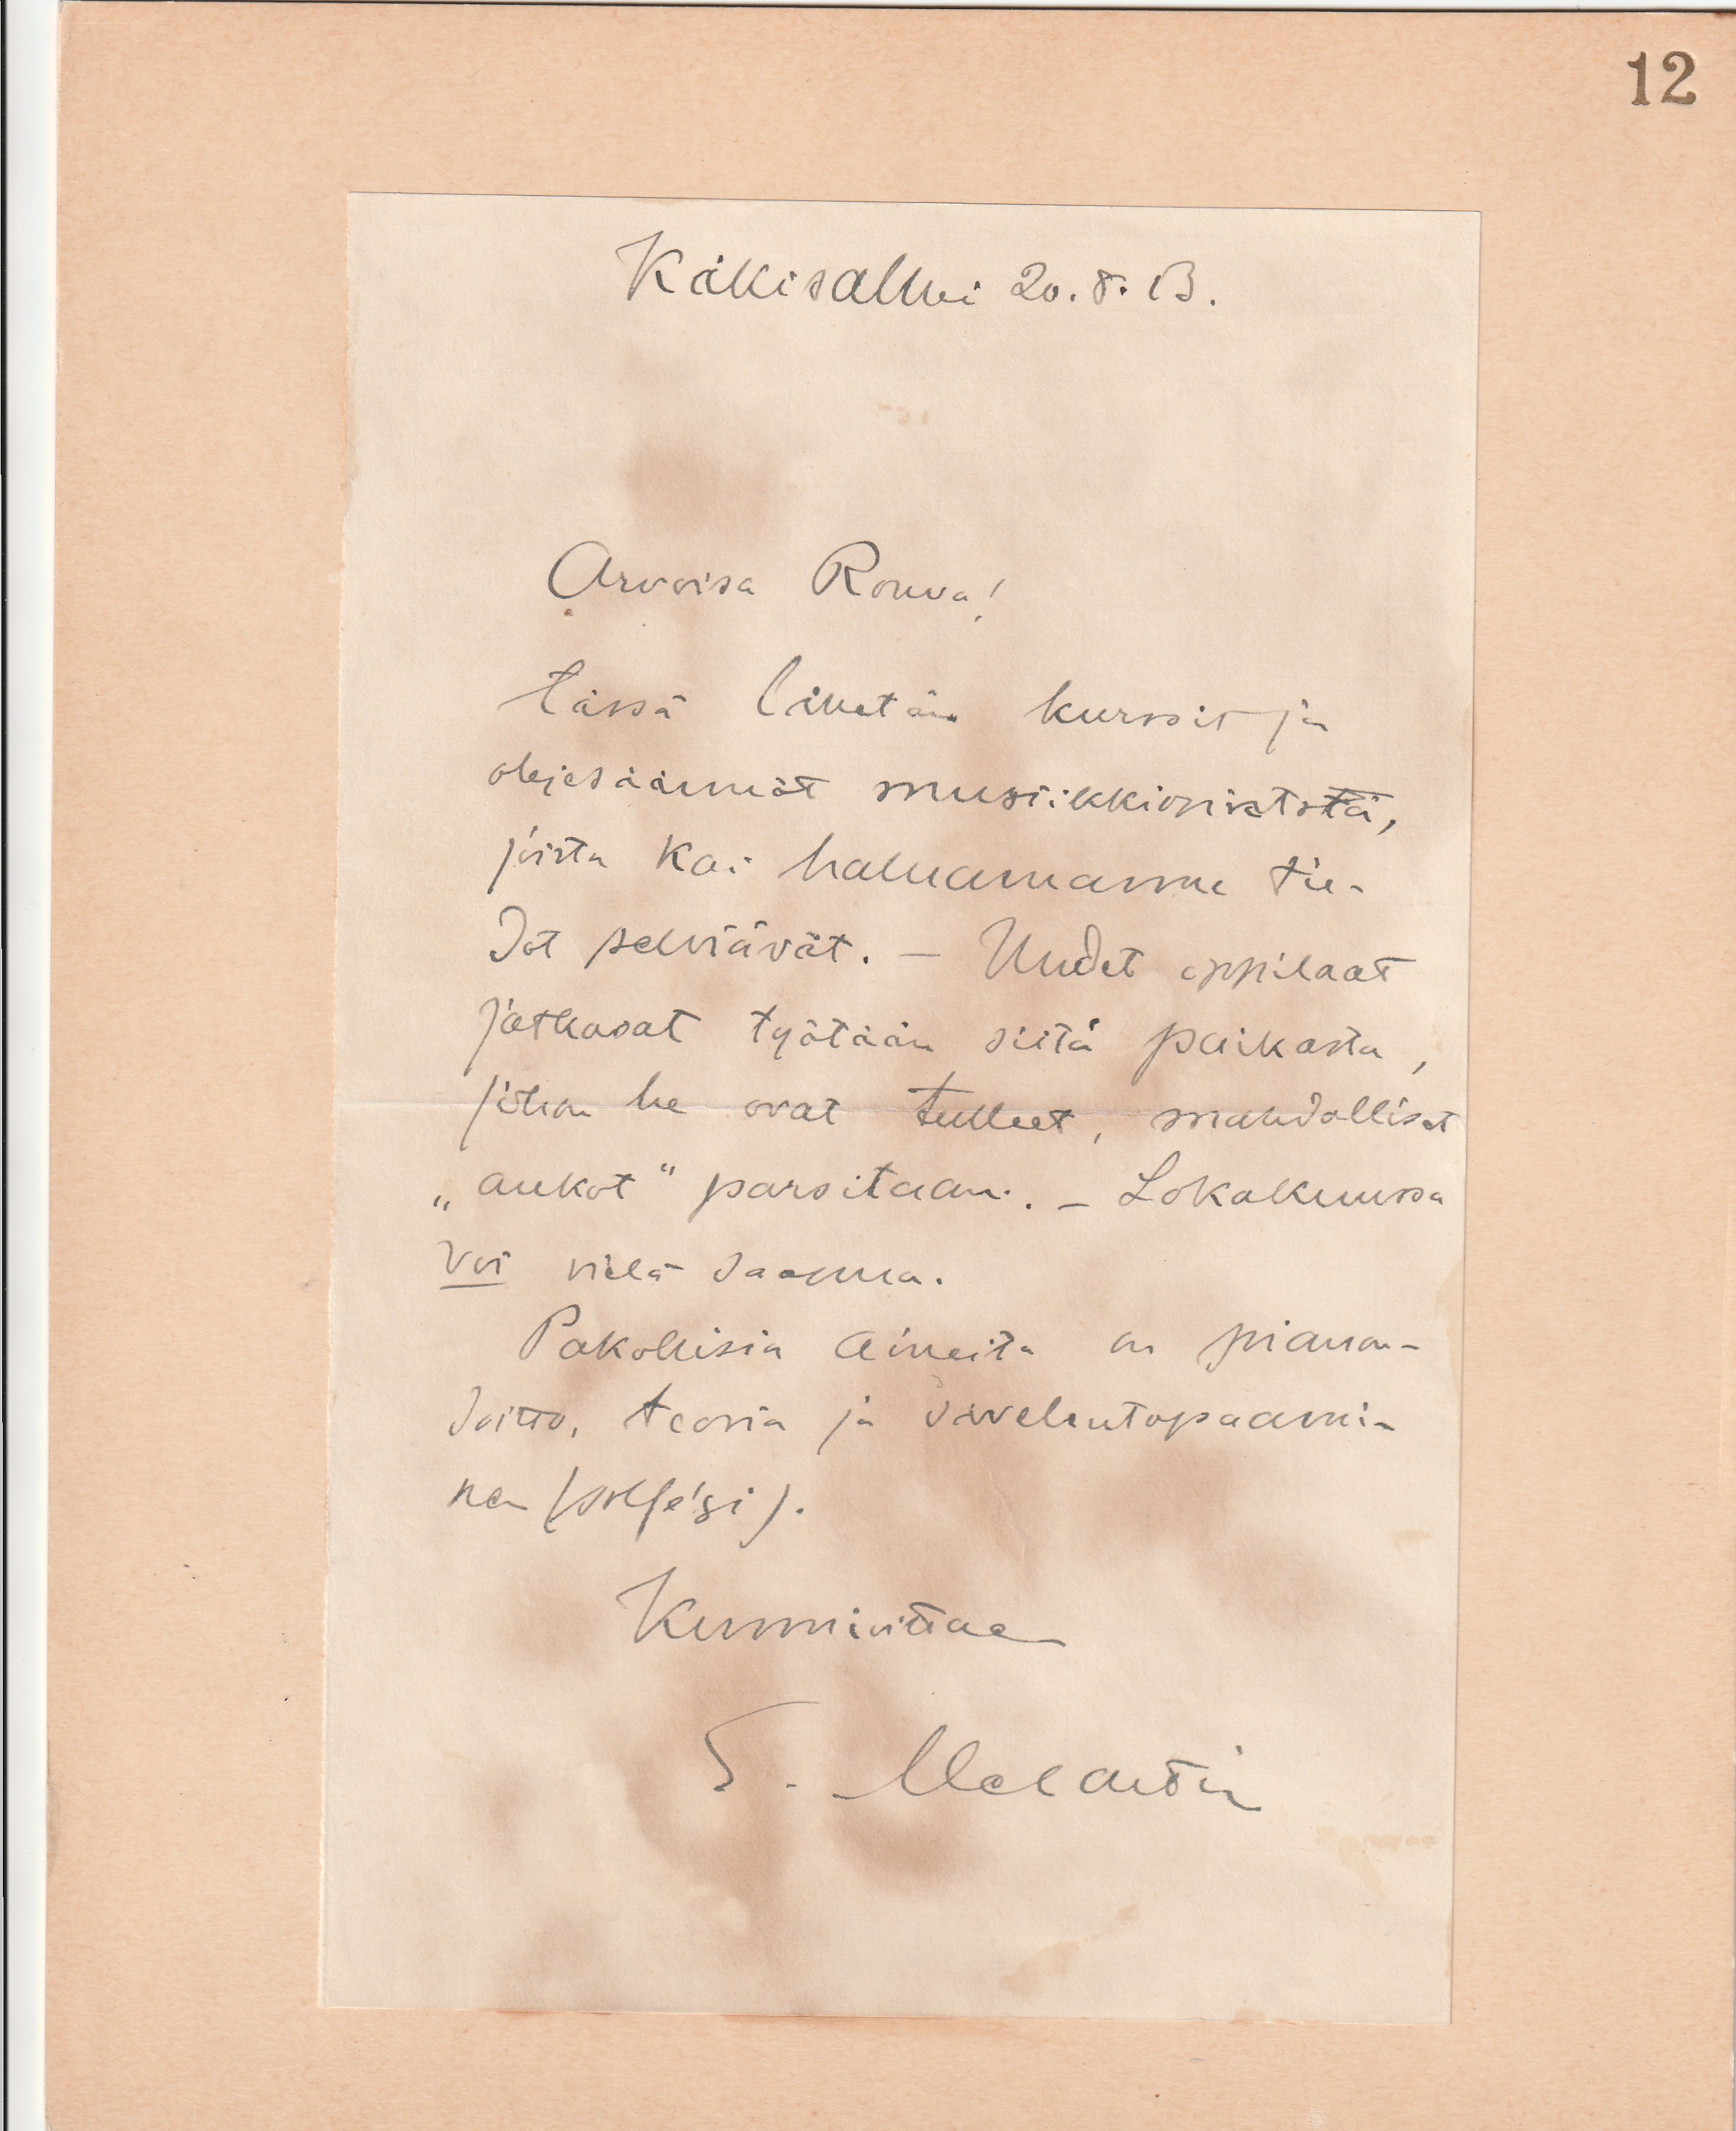 12
Käkisalmi 20.8.13.
Arvoisa Rouva!
Tässä lähetän kurssit ja
ohjesäännöt musiikkiopistosta,
joista kai haluamanne tie-
dot selviävät. – Uudet oppilaat
jatkavat työtään siitä paikasta,
johon he ovat tulleet, mahdolliset
„aukot“ parsitaan. – Lokakuussa
voi vielä saapua.
Pakollisia aineita on pianon-
soitto, teoria ja säveltentapaami-
nen (solfégi).
Kunnioittaen
E. Melartin